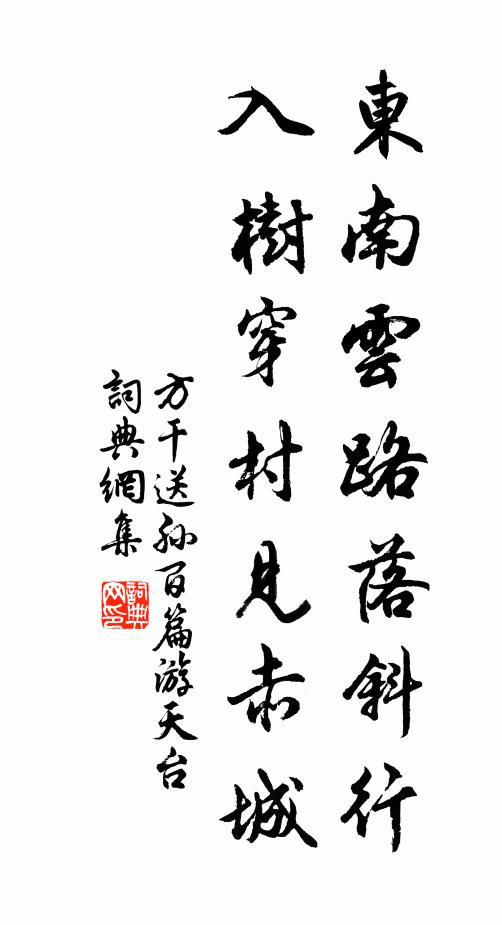 東南雲路落斜行
入樹穿村見赤城
方干送孙百篇游天台
詞典網集
詞典
网印